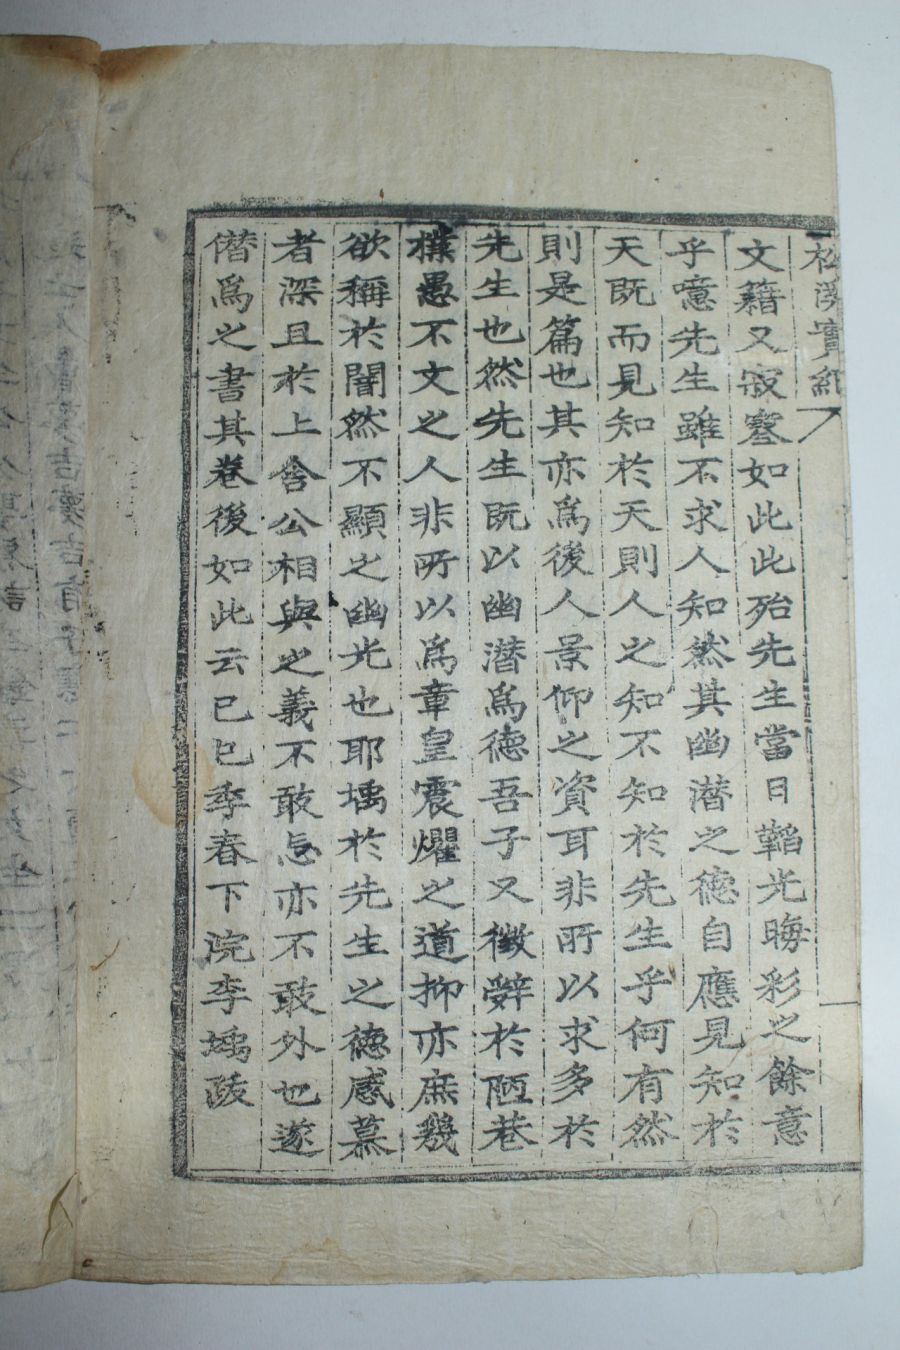 松溪實紀
文籍又寂寥如此此殆先生當日韜光晦彩之餘意
乎噫先生雖不求人知然其幽潜之德自應見知於
天既而見知於天則人之知不知於先生乎何有然
則是篇也其亦爲後人景仰之資耳非所以求多於
先生也然先生既以幽潜爲德吾子又徵辭於陋巷
樸愚不文之人非所以爲章皇震燿之道抑亦庶幾
欲稱於闇然不顯之幽光也耶㙔於先生之德感慕
者深且於上舍公相與之義不敢忘亦不敢外也遂
僣爲之書其卷後如此云己巳季春下浣李㙔跋